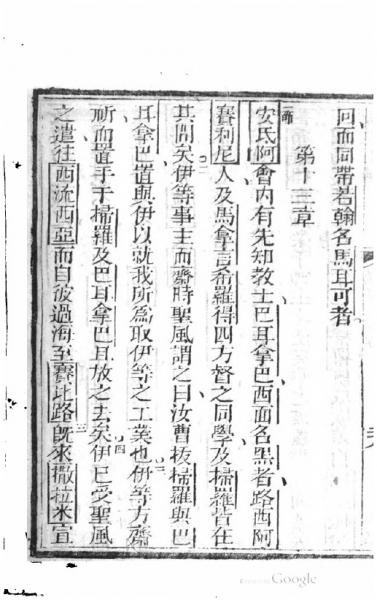 回而同帶若翰名馬耳可者
第十三章
一節
安氏阿會內有先知教士巴耳拿巴西面名黑者路西阿
賽利尼人及馬拿言希羅得四方督之同學及掃羅皆在
其間矣伊等事主而齋時聖風謂之曰汝曹拔掃羅與巴
二
耳拿巴置與伊以就我所為取伊等之工業也伊等方齋
三
祈而置手于掃羅及巴耳拿巴且放之去矣伊巳受聖風
四
之遣往西流西亞而自彼過海至賽比路既來撒拉米宣
五
Google